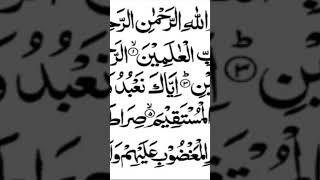 اللهِ الرَّحْمٰنِ الرَّحِ
بِّ الْعٰلَمِيْنَ ۙ﴿۱﴾ الرَّ
يْنِ ؕ﴿۳﴾ اِيَّاكَ نَعْبُدُ وَ
الْمُسْتَقِيْمَ ۙ﴿۵﴾ صِرَا
الْمَغْضُوْبِ عَلَيْهِمْ وَ